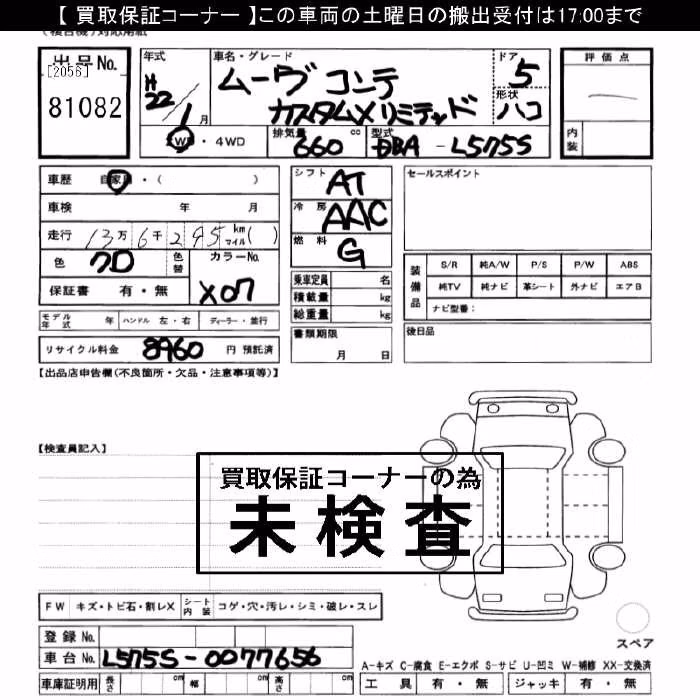 【 買取保証コーナー 】この車両の土曜日の搬出受付は17:00まで
出品No.
[2056]
81082
年式
H
22
1
月
車名・グレード
ムーヴ コンテ
カスタムXリミテッド
ドア
5
形状
ハコ
2WD・4WD
排気量
660
cc
型式
DBA-L575S
評価点
内装
車歴 自家用・( )
車検 年 月
走行 13万6千295 km マイル( )
色
クロ
色替
カラーNo.
X07
保証書 有・無
シフト
AT
冷房
AAC
燃料
G
乗車定員 名
積載量 kg
総重量 kg
セールスポイント
装備品
S/R 純A/W P/S P/W ABS
純TV 純ナビ 革シート 外ナビ エアB
ナビ型番:
モデル年式 年 ハンドル 左・右 ディーラー・並行
リサイクル料金 8960 円 預託済
書類期限
月 日
後日品
【出品店申告欄(不良箇所・欠品・注意事項等)】
【検査員記入】
買取保証コーナーの為
未検査
FW キズ・トビ石・割レX
シート内装 コゲ・穴・汚レ・シミ・破レ・スレ
登録No.
車台No. L575S-0077656
車庫証明用 長さ cm 幅 cm 高さ cm
スペア
A-キズ C-腐食 E-エクボ S-サビ U-凹ミ W-補修 XX-交換済
工具 有・無 ジャッキ 有・無